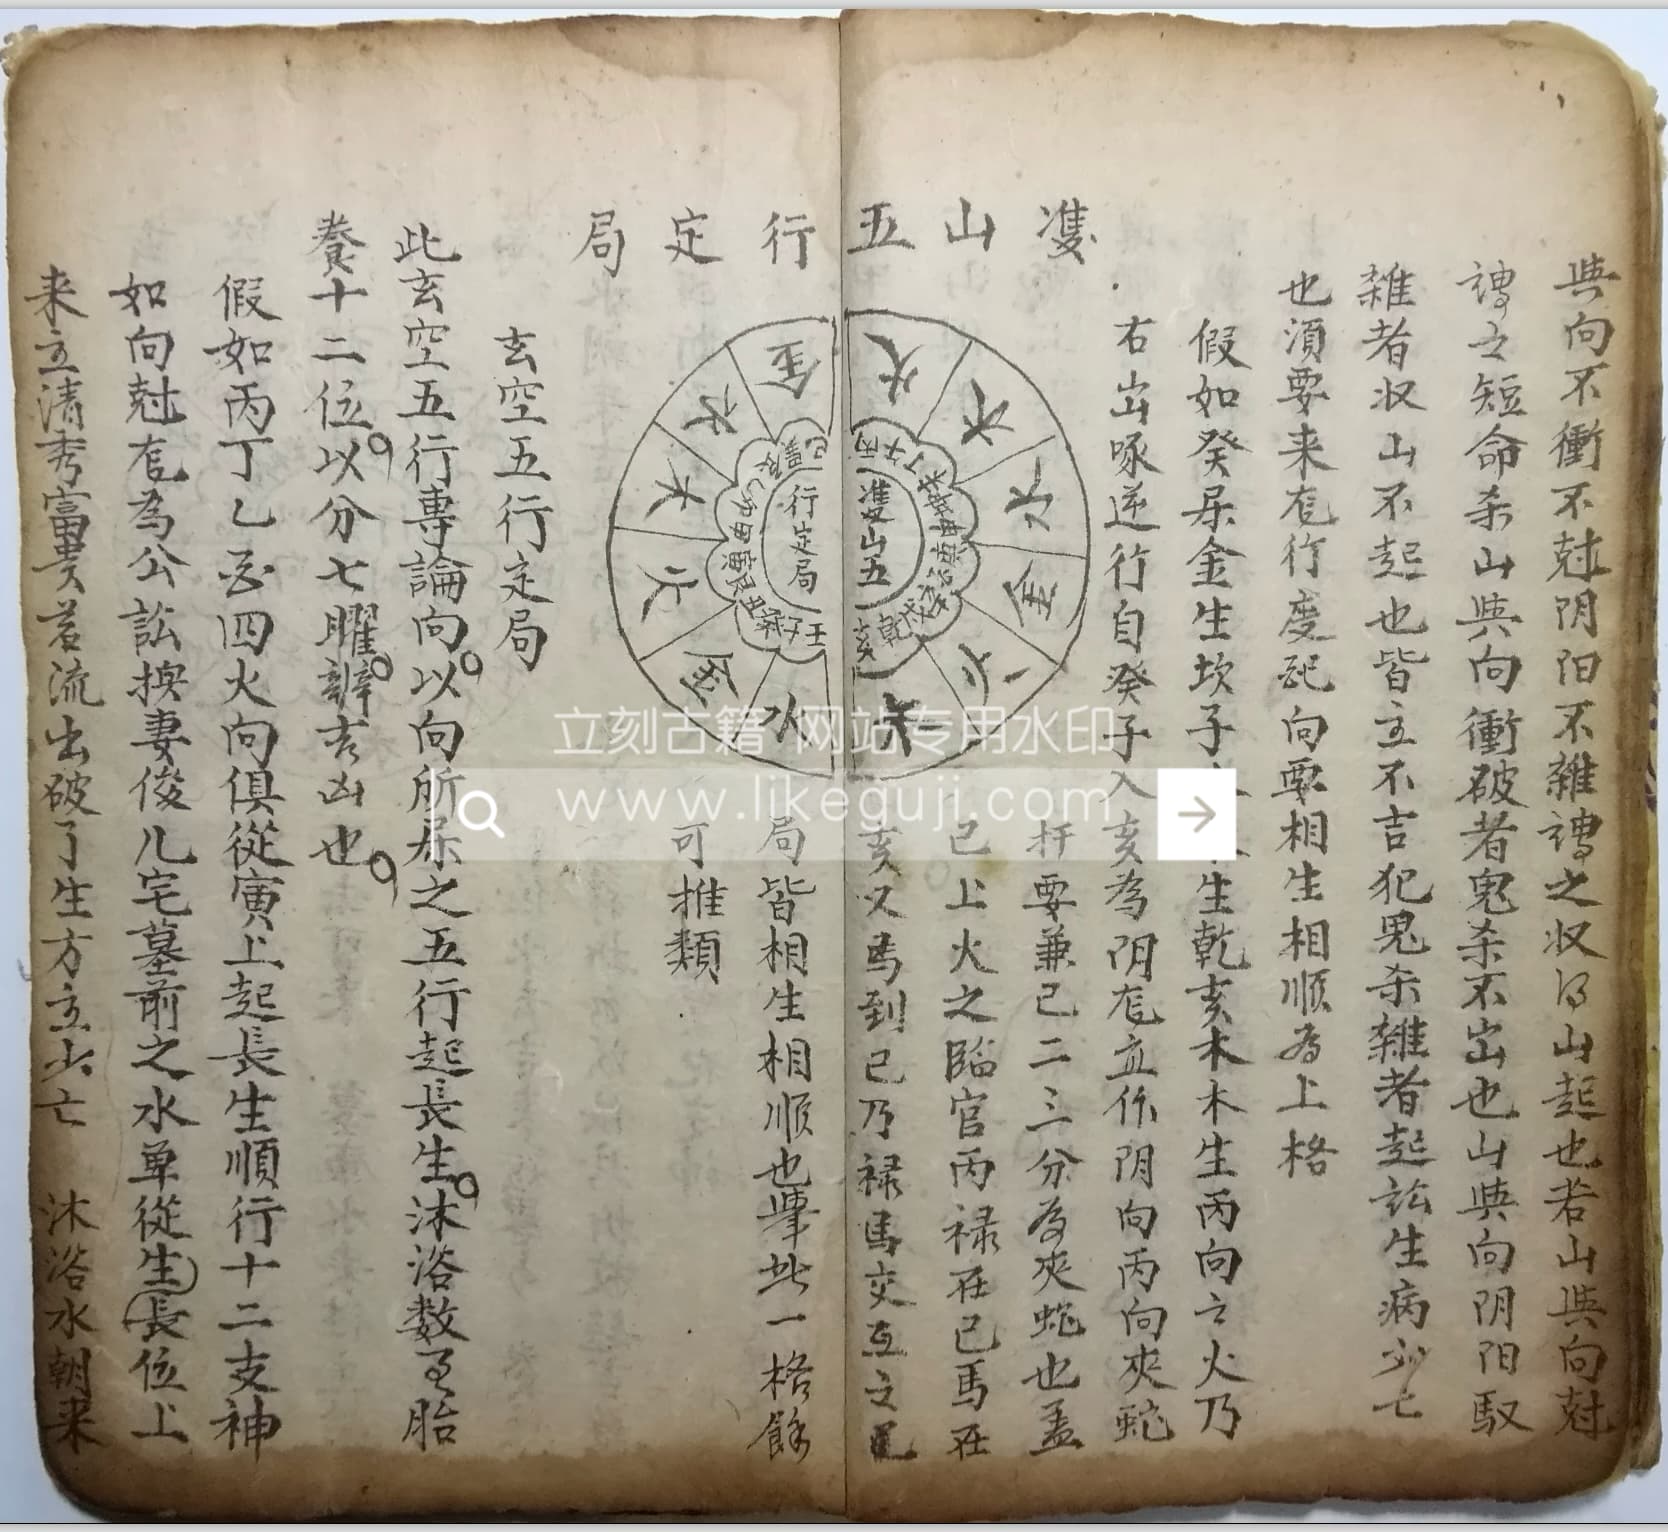 與向不衝不尅阴阳不雜謂之収得山起也若山與向尅
謂之短命杀山與向衝破者鬼杀不出也山與向阴阳馭
雜者収山不起也皆主不吉犯鬼杀雜者起訟生病少亡
也須要来龙行度配向要相生相順為上格
假如癸屎金生坎子生乾亥木木生丙向之火乃
右出啄逆行自癸子入亥為阴龙立作阴向丙向夾蛇
扦要兼巳二三分為夾蛇也盖
已上火之臨官丙禄在巳馬在
亥又馬到巳乃禄馬交互之
局皆相生相順也舉此一格餘
可推類
雙山五行定局
火
木
水
金
火
木
水
金
火
木
水
金
雙山五
行定局
玄空五行定局
此玄空五行專論向以向所屎之五行起長生沐浴数至胎
養十二位以分七曜辦吉凶也
假如丙丁乙酉四火向俱從寅上起長生順行十二支神
如向尅龙為公訟換妻俊儿宅墓前之水单從生長位上
来主清秀富貴若流出破了生方主少亡 沐浴水朝来
立刻古籍 网站专用水印
www.likeguji.com